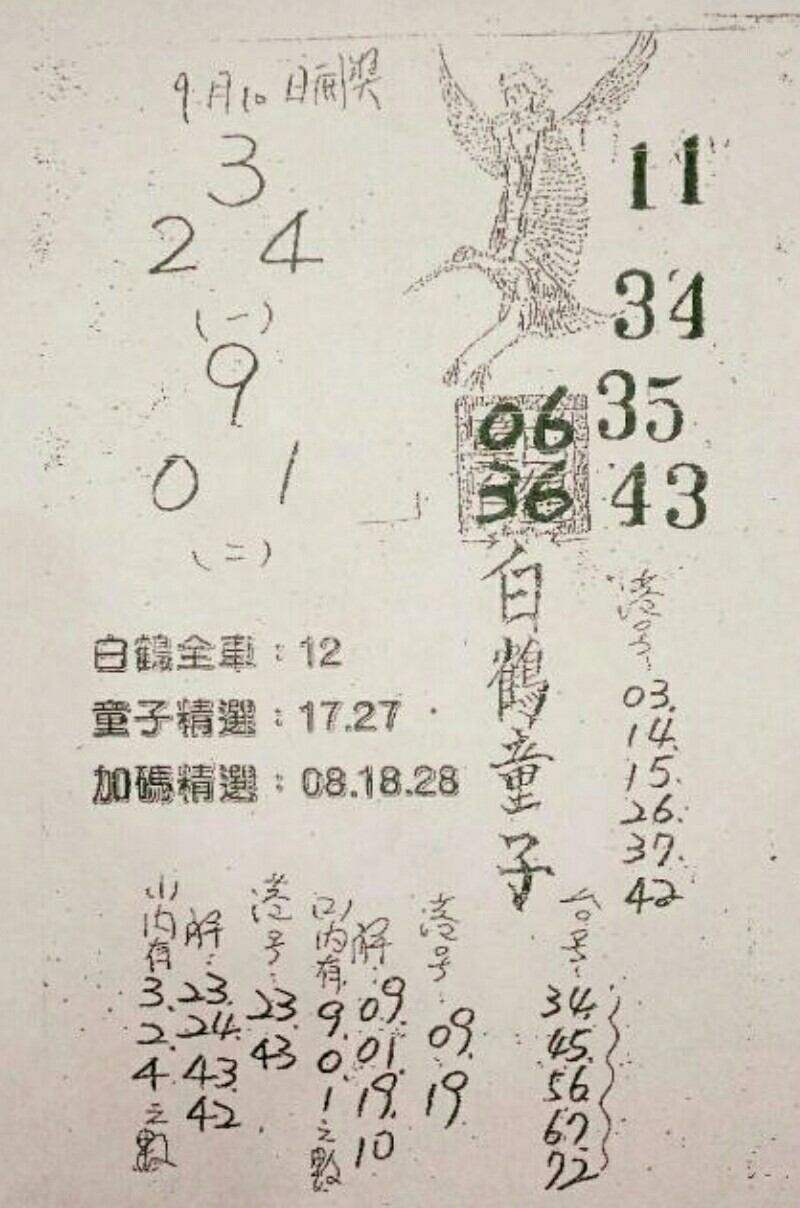 9月10日開獎
3
2 4
(一)
9
0 1
(二)
11
34
35
43
06
36
白鶴童子
港号:
03.
14.
15.
26.
37.
42
白鶴全車:12
童子精選:17.27
加碼精選:08.18.28
(1)內有
3.
2.
4
之數
解:
23.
24.
43.
42
港号:
23.
43
(2)內有
9.
0.
1
之數
解:
09.
01.
19.
10
港号:
09.
19
台号:
34.
45.
56
67
72